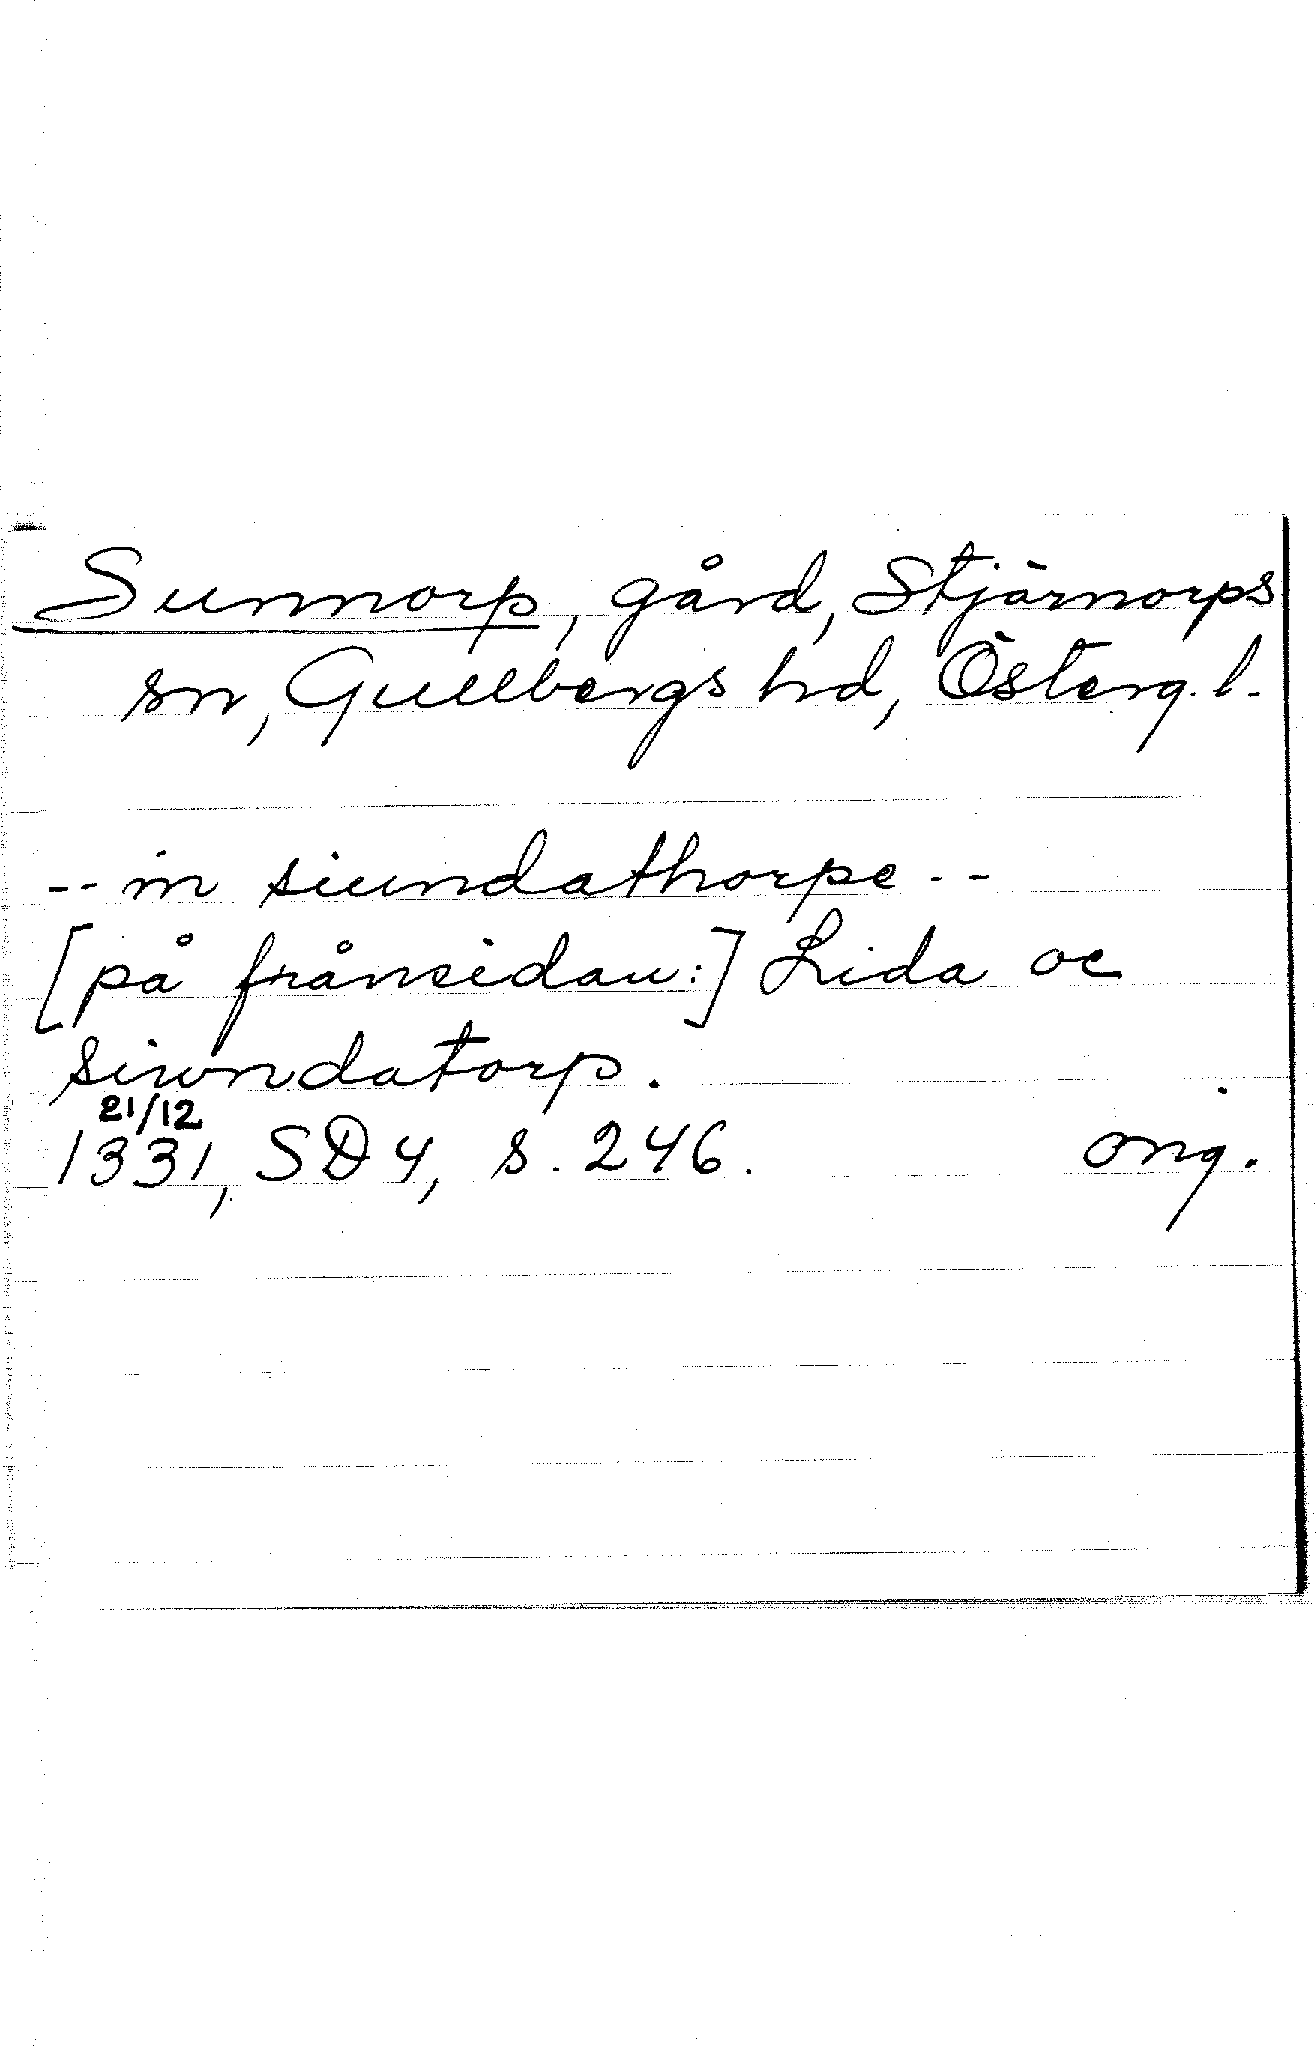 Sunnorp, gård, Stjärnorps
sn, Gullbergs hd, Österg. l.
-- in siundathorpe --
[på frånsidan:] Lida oc
siwndatorp.
21/12
1331, SD 4, s. 246. orig.